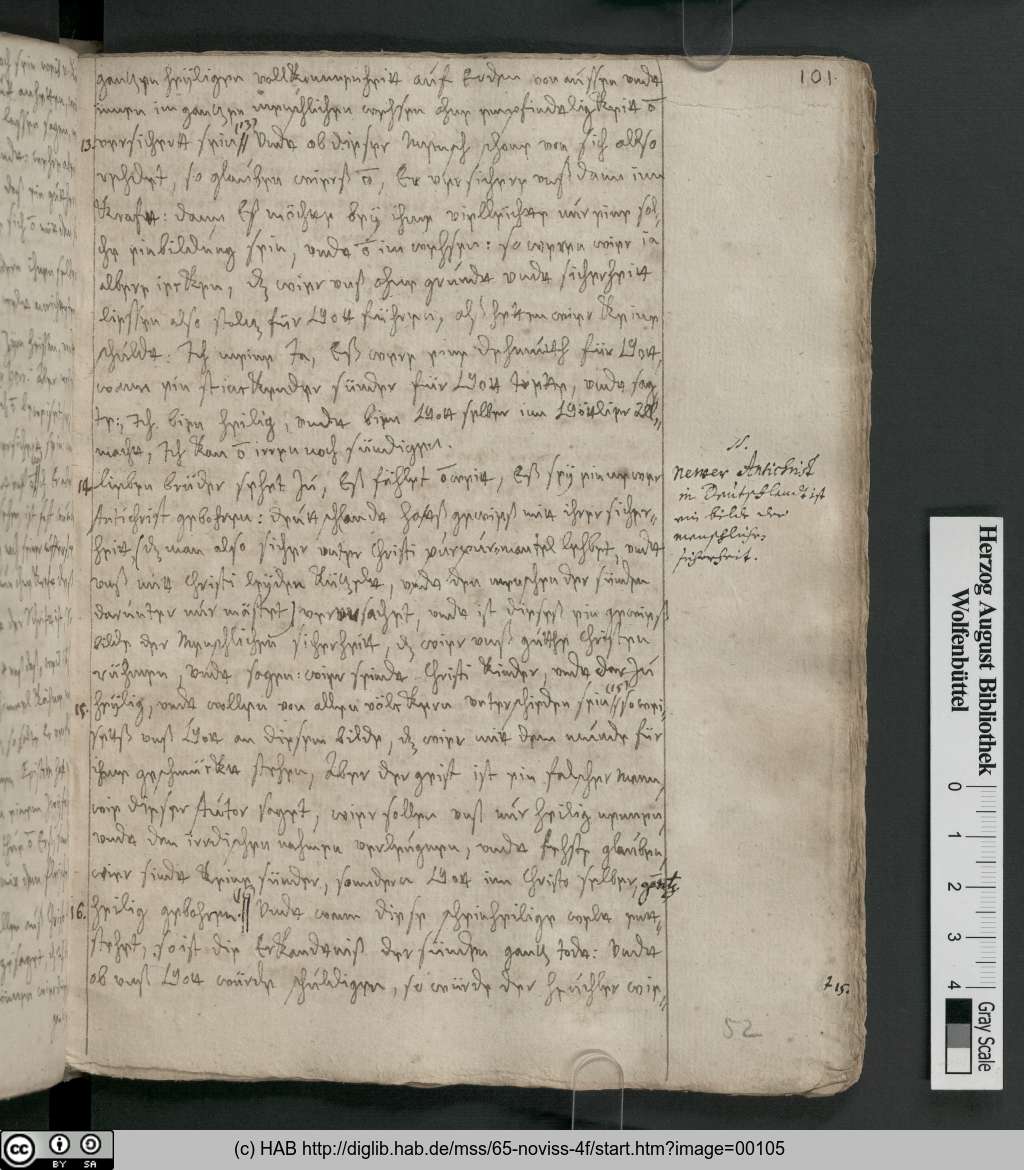 101.
gantzen heyligen vollkommenheit auf Erden von aussen unde
innen im gantzen menschlichen wesen ohne
13. versichert sein // Unde ob dieser Mensch schone von sich also
redet, so glauben wirß ō, Er versichere unß dann im
Krafft: dann Eß möchte bey ihme vielleichte nur eine sol-
che einbildung sein, unde ō im wesen: so weren wier ia
albere iecken, dz wier unß ohne grunde unde sicherheit
liessen also stoltz für Gott führen, alß hetten wier keine
schulde: Ich meine Ja, Eß were eine dehmuth für Gott,
wann ein stinckender sünder für Gott trete, unde sag-
te: Ich bien heilig, unde bien Gott selber im Göttlicher All-
macht, Ich kan ō irren noch sündigen.
14. lieben brüder sehet zu, Eß fehlet ō weit, Eß sey ein newer
Antichrist gebohren: deutschlandt hatß gewieß mit ihrer sicher-
heit (dz man also sicher unter Christi purpurmantel lebet, unde
unß mit Christi leyden kützele, unde den menschen der sünden
darunter nur mästet) verursachet, unde ist dieseß ein gewieß
bilde der Menschlichen sicherheit, dz wier unß guthe Christen
rühmen, unde sagen: wier seinde Christi Kinder, unde dar zu
15. heylig, unde wollen von allen völckern unterschieden sein // so wei-
setß unß Gott an diesem bilde, dz wier mit dem munde für
ihme geschmückt stehen, Aber der geist ist ein falscher Mann,
wie dieser Autor saget, wier sollen unß nur heilig nennen,
unde den irrdischen nahmen verleugnen, unde feste glauben
wier sindt keine sünder, sondern Gott im Christo selber, gantz
16. heilig gebohren. // Unde wann diese scheinheilige welt ent-
stehet, so ist die Erkandtniß der sünden gantz todt: Unde
ob unß Gott würde schuldigen, so würde der heuchler wie-
//.
newer Antichrist
in Deutschlandt ist
ein bilde der
menschliche-
sicherheit.
† 15.
52
Herzog August Bibliothek
Wolfenbüttel
0 1 2 3 4
Gray Scale
(c) HAB http://diglib.hab.de/mss/65-noviss-4f/start.htm?image=00105